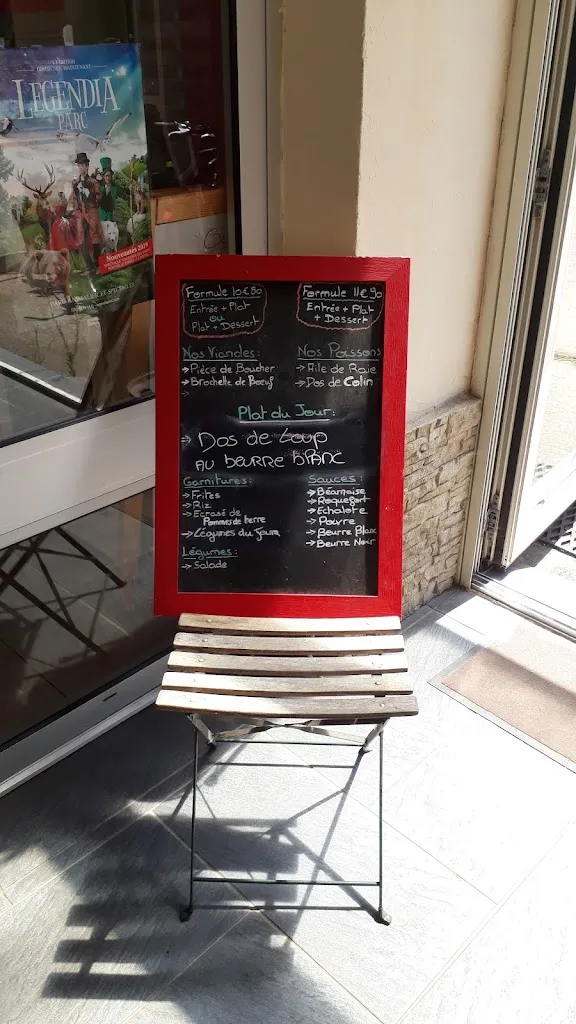 LEGENDIA
PARC
Nouveautés 2019
Formule 10€80
Entrée + Plat
ou
Plat + Dessert
Formule 11€90
Entrée + Plat
+ Dessert
Nos Viandes:
→ Pièce de Boucher
→ Brochette de Boeuf
→
Nos Poissons
→ Aile de Raie
→ Dos de Colin
Plat du Jour:
→ Dos de Loup
au beurre blanc
Garnitures:
→ Frites
→ Riz
→ Ecrasé de
Pommes de terre
→ Légumes du Jour
Légumes:
→ Salade
Sauces:
→ Béarnaise
→ Roquefort
→ Echalote
→ Poivre
→ Beurre Blanc
→ Beurre Noir